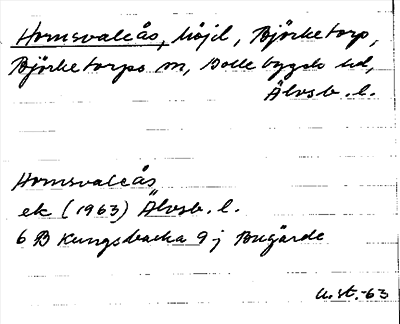 Hornsvaleås, höjd, Björketorp,
Björketorps sn, Bollebygds hd,
Älvsb. l.
Hornsvaleås
ek (1963) Älvsb. l.
6 B Kungsbacka 9 j Bugärde
u.st.-63